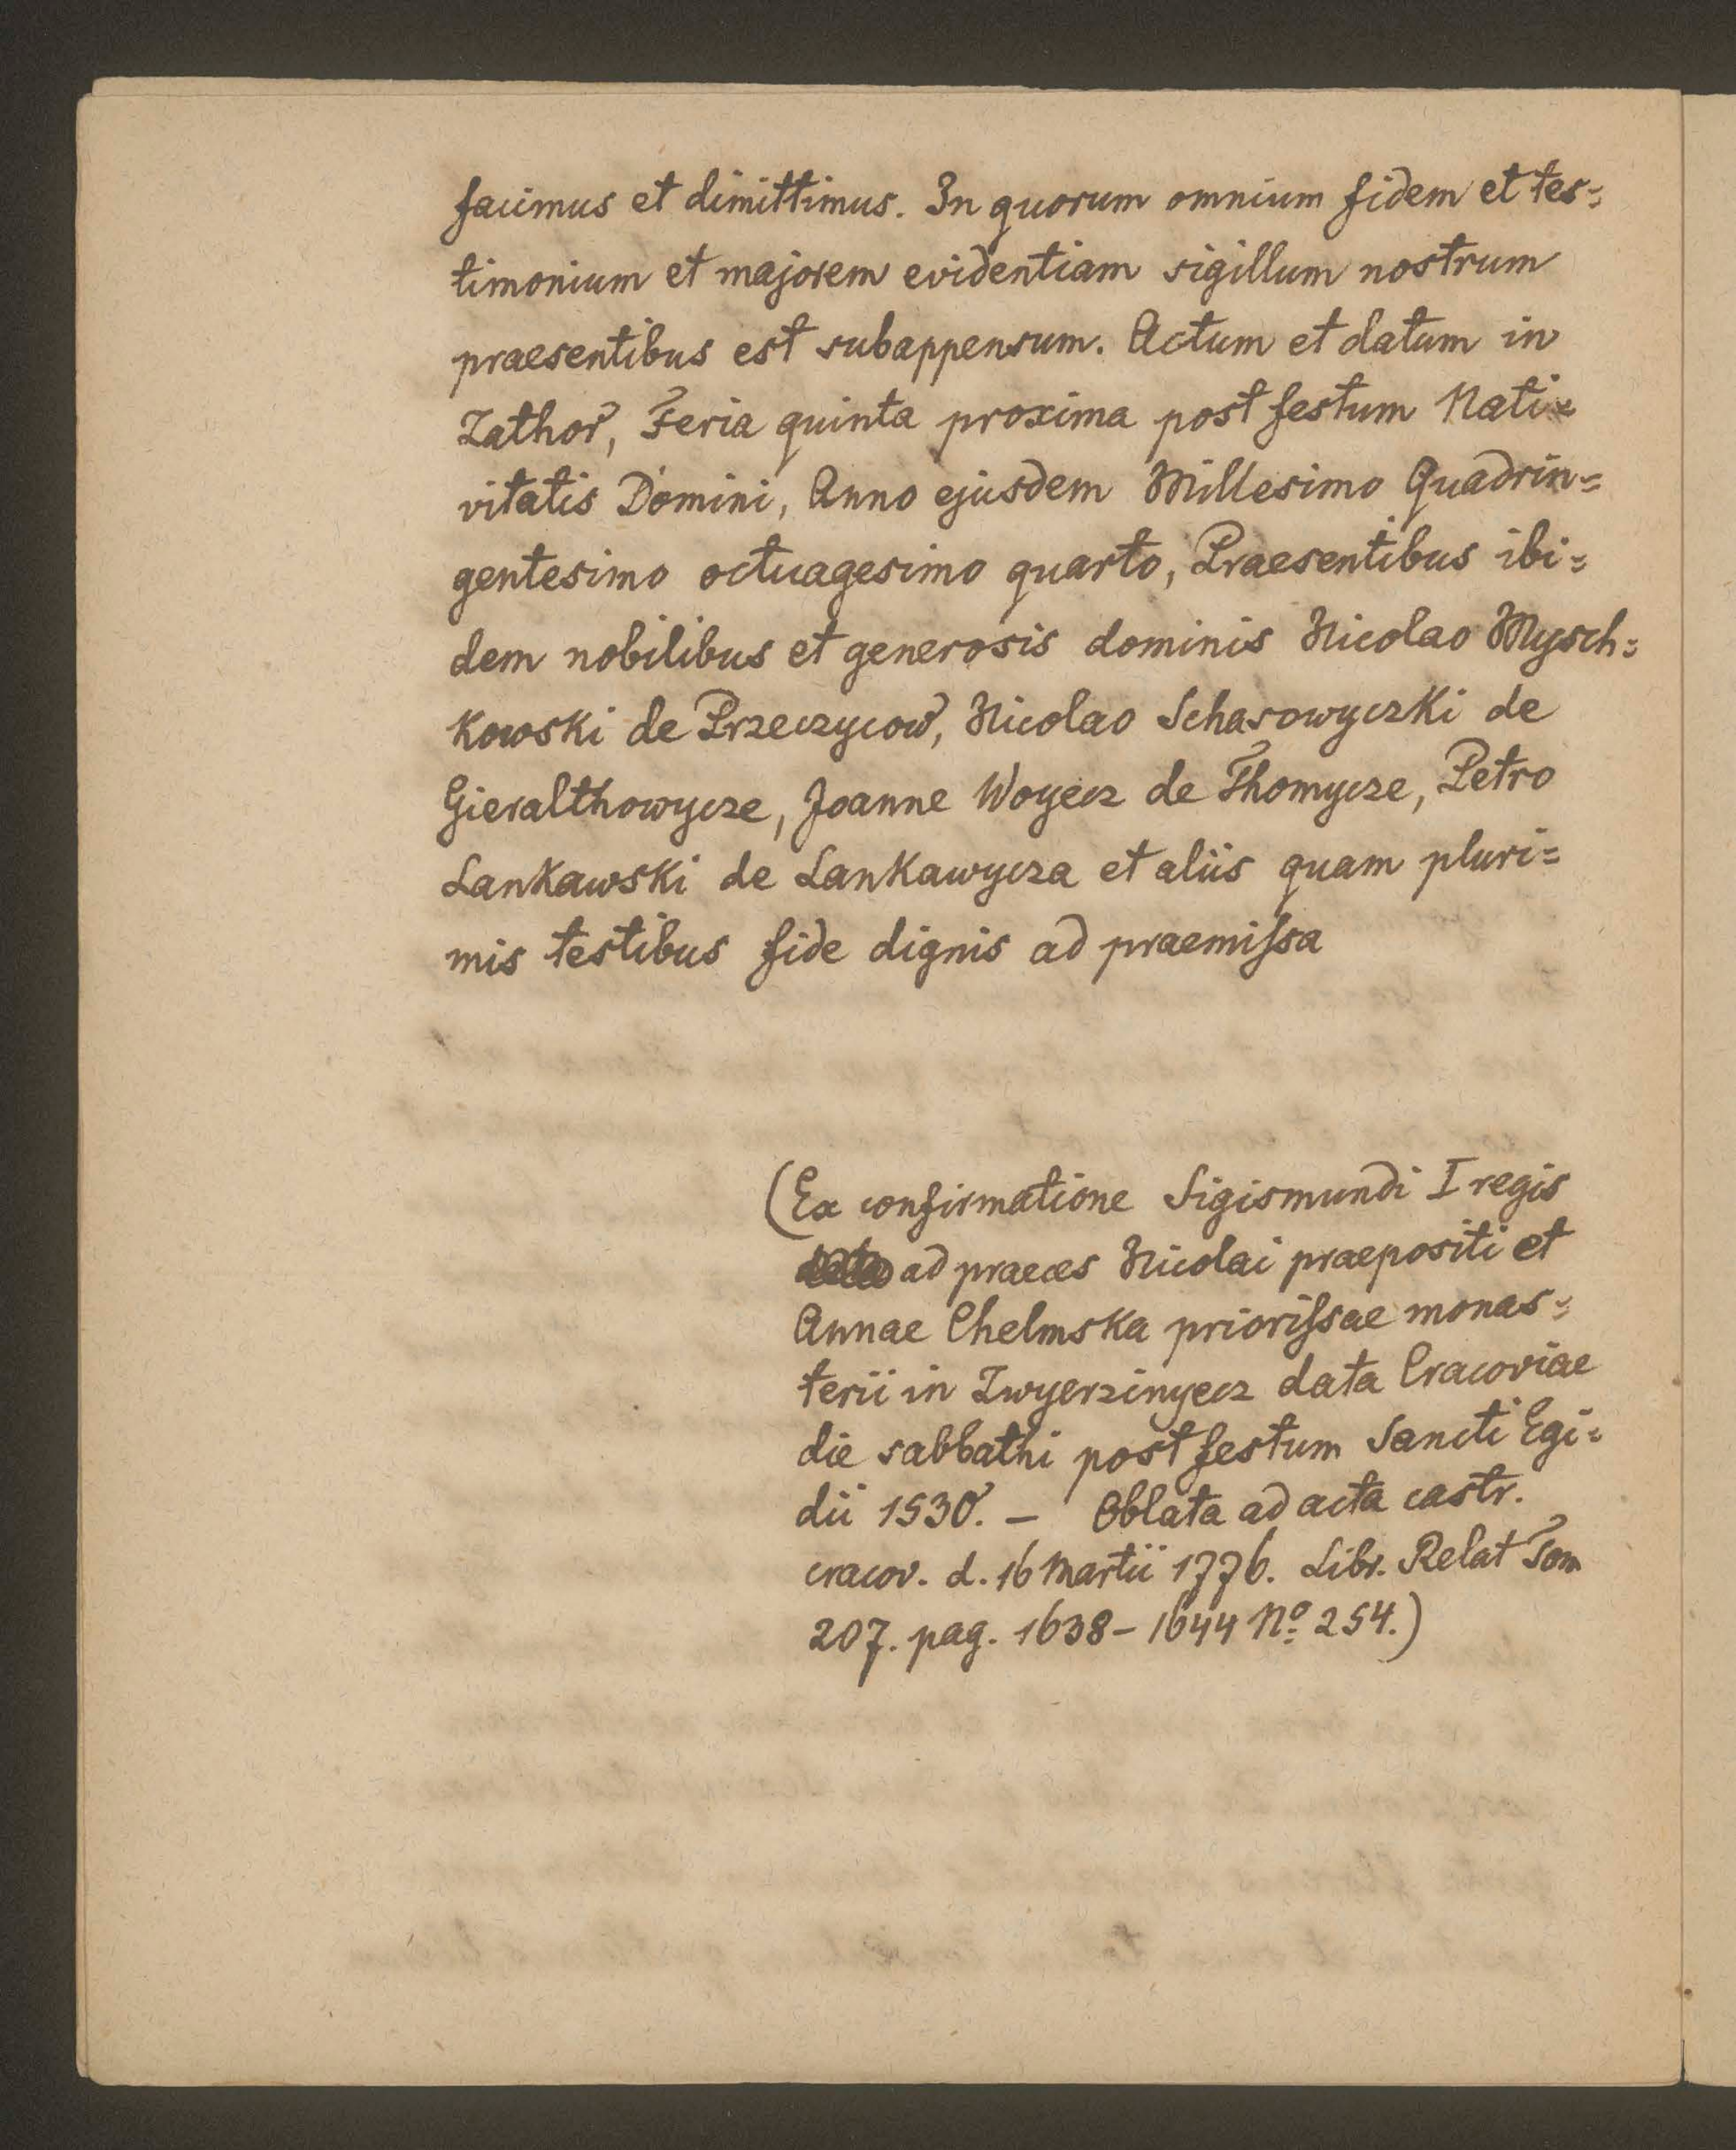 facimus et dimittimus. In quorum omnium fidem et tes=
timonium et majorem evidentiam sigillum nostrum
praesentibus est subappensum. Actum et datum in
Zathor, Feria quinta proxima post festum Nati=
vitatis Domini, Anno ejusdem Millesimo Quadrin=
gentesimo octuagesimo quarto, Praesentibus ibi=
dem nobilibus et generosis dominis Nicolao Mysch=
kowski de Przeczycow, Nicolao Scharowyczki de
Gieralthowycze, Joanne Woyecz de Thomycze, Petro
Lankawski de Lankawycza et aliis quam pluri=
mis testibus fide dignis ad praemiſsa
(Ex confirmatione Sigismundi I regis
ad praeces Nicolai praepositi et
Annae Chelmska prioriſsae monas=
terii in Zwyerzinyecz data Cracoviae
die sabbathi post festum Sancti Egi=
dii 1530. — Oblata ad acta castr.
cracov. d. 16 Martii 1776. Libr. Relat Tom
207. pag. 1638–1644 Nº 254.)